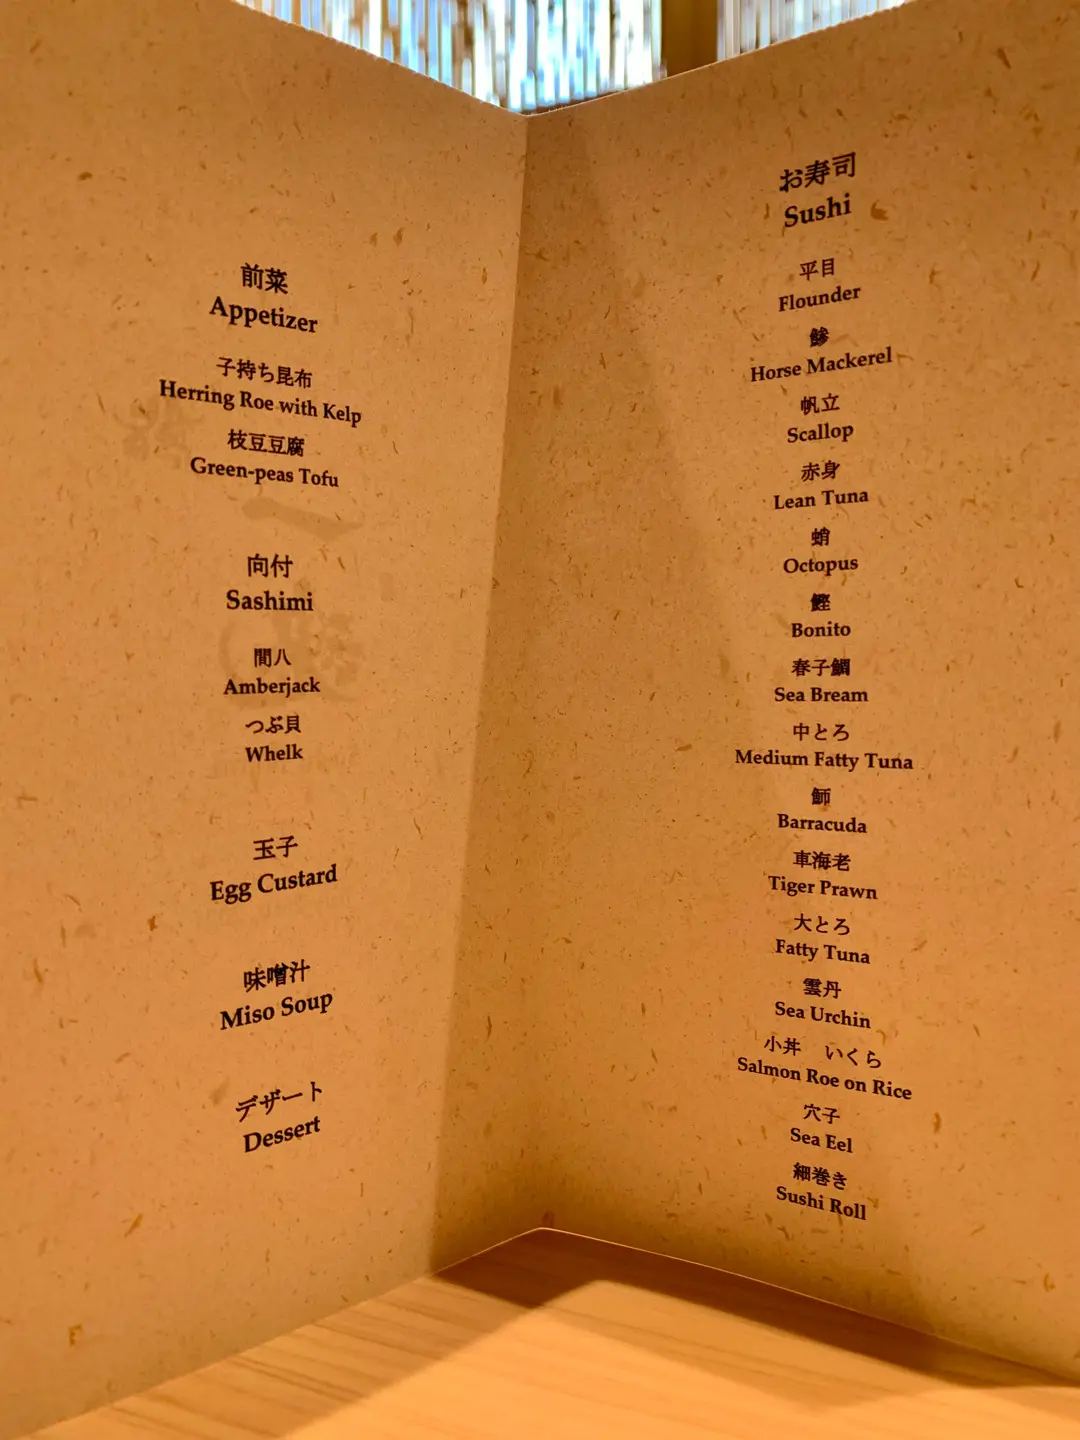 前菜
Appetizer
子持ち昆布
Herring Roe with Kelp
枝豆豆腐
Green-peas Tofu
向付
Sashimi
間八
Amberjack
つぶ貝
Whelk
玉子
Egg Custard
味噌汁
Miso Soup
デザート
Dessert
お寿司
Sushi
平目
Flounder
鯵
Horse Mackerel
帆立
Scallop
赤身
Lean Tuna
蛸
Octopus
鰹
Bonito
春子鯛
Sea Bream
中とろ
Medium Fatty Tuna
魳
Barracuda
車海老
Tiger Prawn
大とろ
Fatty Tuna
雲丹
Sea Urchin
小丼 いくら
Salmon Roe on Rice
穴子
Sea Eel
細巻き
Sushi Roll